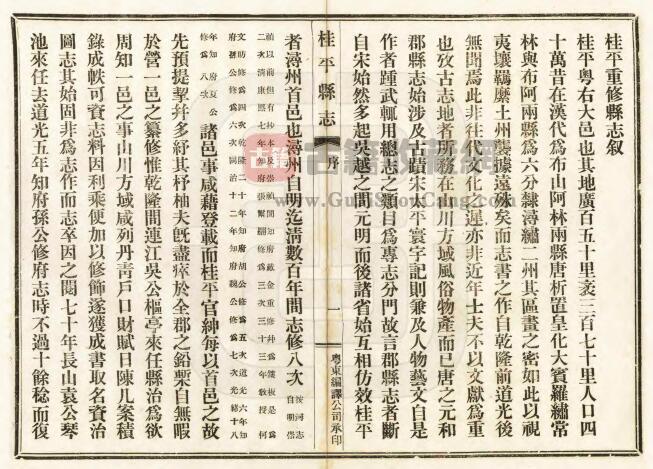 桂平重修縣志敘
桂平粤右大邑也其地廣百五十里袤三百七十里人口四
十萬昔在漢代為布山阿林兩縣唐析置皇化大賓羅繡常
林與布阿兩縣為六分隸潯繡二州其區畫之密如此以視
夷壤羈縻土州襲據遠矣而志書之作自乾隆前道光後
無聞焉此非往代文化之遲亦非近年士夫不以文獻爲重
也攷古志地者所務在山川方域風俗物產而已唐之元和
郡縣志始涉及古蹟宋太平寰宇記則兼及人物藝文自是
作者踵武輒用總志之類目爲專志分門故言郡縣志者斷
自宋始然多起吳越之間元明而後諸省始互相仿效桂平
桂平縣志
序
一
粵東編譯公司承印
者潯州首邑也潯州自明迄淸數百年間志修八次
按河志自明崇
禎以前但有抄本及崇禎間知府戴金重修梓爲槧板是爲
二次淸康熙十年知府張繫翻修爲三次三十三年敎授何
文明修爲四次二十年知府胡公修爲五次道光六年知
府孫公修爲六次同治十二年知府魏公修爲七次光緒十八
年知府夏公修爲八次
諸邑事咸藉登載而桂平官紳每以首邑之故
先預提挈并多紓其杼柚夫旣盡瘁於全郡之鉛槧自無暇
於營一邑之纂修惟乾隆間連江吳公樞亭來任縣治爲欲
周知一邑之事山川方域咸列丹靑戶口財賦日陳几案積
錄成帙可資志料因利乘便加以修飾遂獲成書取名資治
圖志其始固非爲志作而志卒因之閱七十年長山袁公琴
池來任去道光五年知府孫公修府志時不過十餘稔而復
古籍收藏網
www.GujiShouCang.com